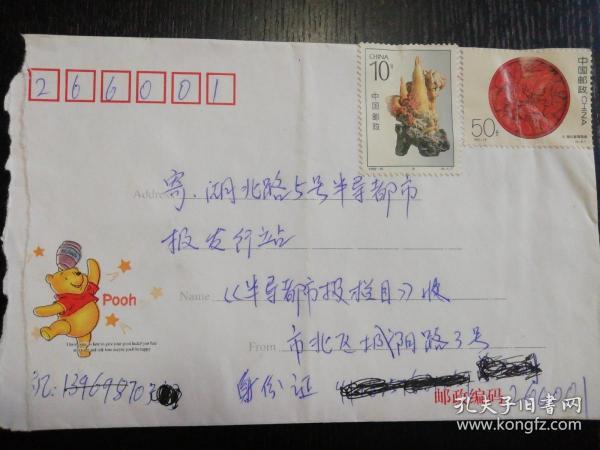 266001
CHINA
10分
中国邮政
50分
中国邮政
CHINA
Address
寄.湖北路5号半导都市
报发行站
Name
《半导都市报栏目》收
From
市北区城阳路3号
Pooh
身份证
邮政编码 266001
孔夫子旧书网
kongfz.com